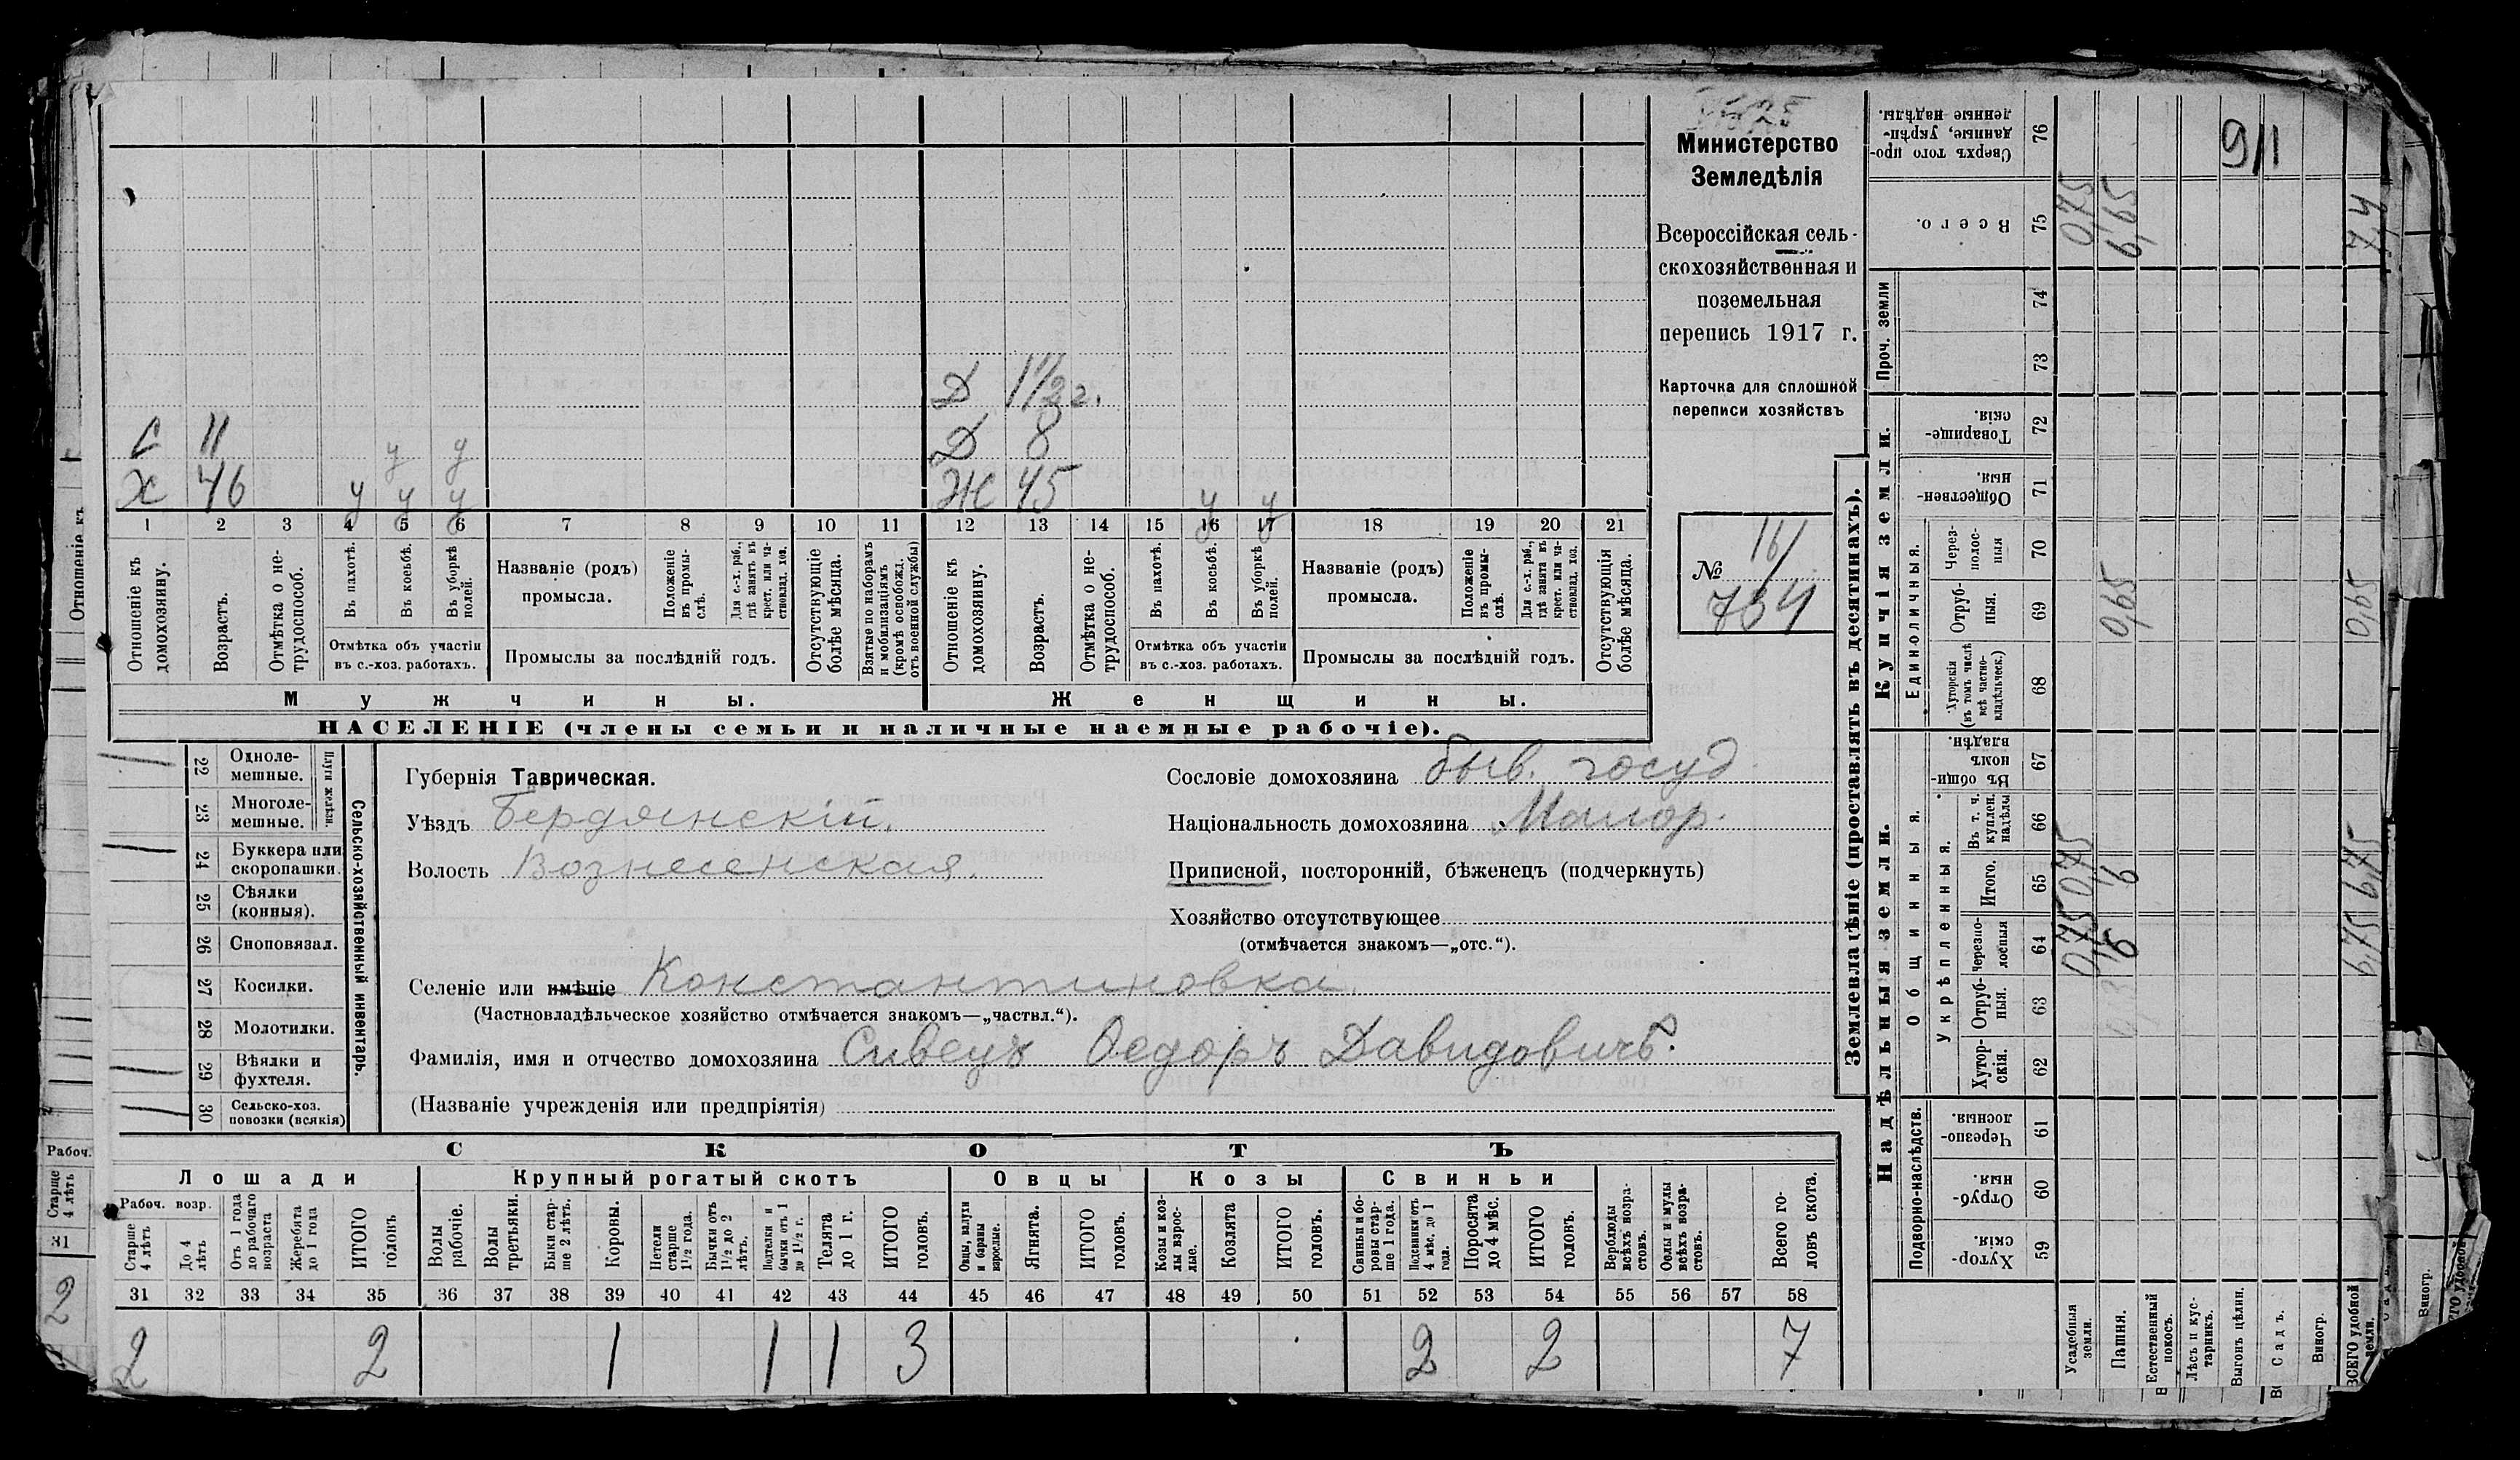 Министерство
Земледѣлія
Всероссійская сель-
скохозяйственная и
поземельная
перепись 1917 г.
Карточка для сплошной
переписи хозяйствъ
№ 16/
734
Д 1 1/2 г.
С 11 у у Д 8
Х 46 у у у Ж 45 у у
1 2 3 4 5 6 7 8 9 10 11 12 13 14 15 16 17 18 19 20 21
Отношеніе къ домохозяину.
Возрастъ.
Отмѣтка о не-трудоспособ.
Въ пахотѣ.
Въ косьбѣ.
Въ уборкѣ полей.
Отмѣтка объ участіи
въ с.-хоз. работахъ.
Названіе (родъ)
промысла.
Положеніе въ промы-слѣ.
Для с.-х. раб., гдѣ занятъ въ крест. или ча-стновлад. хоз.
Промыслы за послѣдній годъ.
Отсутствующіе болѣе мѣсяца.
Взятые по наборамъ и мобилизаціямъ (кромѣ освобожд. отъ военной службы)
Отношеніе къ домохозяину.
Возрастъ.
Отмѣтка о не-трудоспособ.
Въ пахотѣ.
Въ косьбѣ.
Въ уборкѣ полей.
Отмѣтка объ участіи
въ с.-хоз. работахъ.
Названіе (родъ)
промысла.
Положеніе въ промы-слѣ.
Для с.-х. раб., гдѣ занята въ крест. или ча-стновлад. хоз.
Промыслы за послѣдній годъ.
Отсутствующія болѣе мѣсяца.
Мужчины. Женщины.
НАСЕЛЕНІЕ (члены семьи и наличные наемные рабочіе).
Сельско-хозяйственный инвентарь.
Плуги желѣзн.
22 Одноле-мешные.
23 Многоле-мешные.
24 Буккера или скоропашки.
25 Сѣялки (конныя).
26 Сноповязал.
27 Косилки.
28 Молотилки.
29 Вѣялки и фухтеля.
30 Сельско-хоз. повозки (всякія)
Губернія Таврическая.
Уѣздъ Бердянскій.
Волость Вознесенская.
Сословіе домохозяина быв. госуд.
Національность домохозяина Малор.
Приписной, посторонній, бѣженецъ (подчеркнуть)
Хозяйство отсутствующее
(отмѣчается знакомъ—„отс.“).
Селеніе или имѣніе Константиновка.
(Частновладѣльческое хозяйство отмѣчается знакомъ—„частвл.“).
Фамилія, имя и отчество домохозяина Сивецъ Ѳедоръ Давидовичъ.
(Названіе учрежденія или предпріятія)
СКОТЪ
Лошади Крупный рогатый скотъ Овцы Козы Свиньи
Рабоч. возр.
Старше 4 лѣтъ
До 4 лѣтъ
Отъ 1 года до рабочаго возраста
Жеребята до 1 года
ИТОГО головъ
Волы рабочіе.
Волы третьяки.
Быки стар-ше 2 лѣтъ.
Коровы.
Нетели старше 1 1/2 года.
Бычки отъ 1 1/2 до 2 лѣтъ.
Подтелки и бычки отъ 1 до 1 1/2 г.
Телята до 1 г.
ИТОГО головъ.
Овцы, валухи и бараны взрослые.
Ягнята.
ИТОГО головъ.
Козы и коз-лы взрос-лые.
Козлята
ИТОГО головъ.
Свиньи и бо-ровы стар-ше 1 года.
Подсвинки отъ 4 мѣс. до 1 года.
Поросята до 4 мѣс.
ИТОГО головъ.
Верблюды всѣхъ возра-стовъ.
Ослы и мулы всѣхъ возра-стовъ.
Всего го-ловъ скота.
31 32 33 34 35 36 37 38 39 40 41 42 43 44 45 46 47 48 49 50 51 52 53 54 55 56 57 58
2 2 1 1 1 3 2 2 7
Землевладѣніе (проставлять въ десятинахъ).
Надѣльныя земли. Купчія земли. Проч. земли
Подворно-наслѣдств.
Общинныя.
Укрѣпленныя.
Единоличныя.
59 Хутор-скія.
60 Отруб-ныя.
61 Черезпо-лосныя.
62 Хутор-скія.
63 Отруб-ныя.
64 Черезпо-лосныя
65 Итого.
66 Въ т. ч. куплен. надѣлы
67 Въ общин-номъ владѣн.
68 Хуторскія (въ томъ числѣ всѣ частно-владѣльческ.)
69 Отруб-ныя.
70 Через-полос-ныя
71 Обществен-ныя.
72 Товарище-скія.
73
74
75 Всего.
76 Сверхъ того про-данные, укрѣп-ленные надѣлы.
Усадебныя земли. 0,75 0,75 0,75
Пашня. 6 6 0,65 6,65
Естественный покосъ.
Лѣсъ и кус-тарникъ.
Выгонъ цѣлин. 9/1
Садъ.
Виногр.
ВСЕГО удобной земли. 6,75 6,75 0,65 7,4
Отношеніе къ
Рабоч.
Старше 4 лѣтъ
31
2
Виногр.